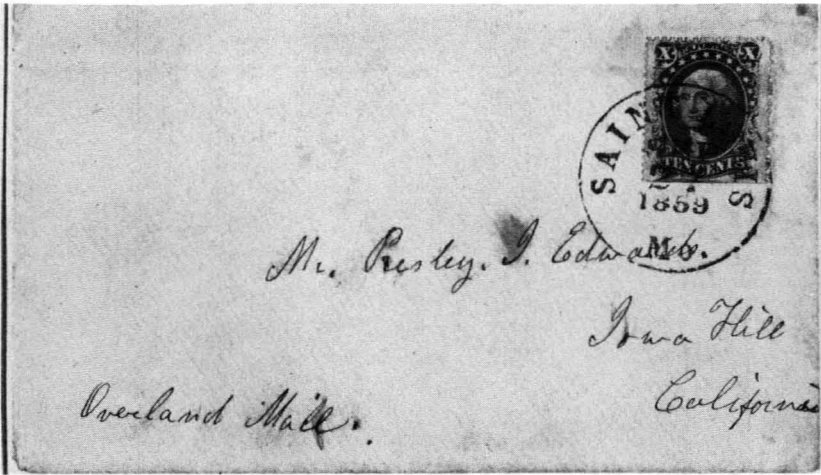 X X
TEN CENTS
SAIN S
1859
Mo.
Mr. Presley. I. Edwards.
Iowa Hill
California
Overland Mail.